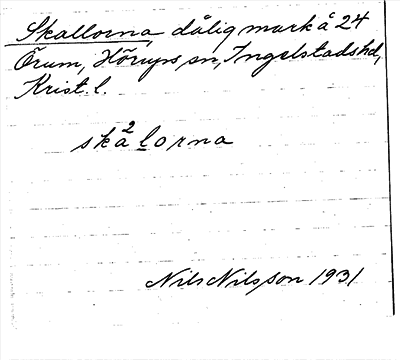 Skallorna, dålig mark å 24
Örum, Hörups sn, Ingelstads hd,
Krist. l.
skå²lorna
Nils Nilsson 1931